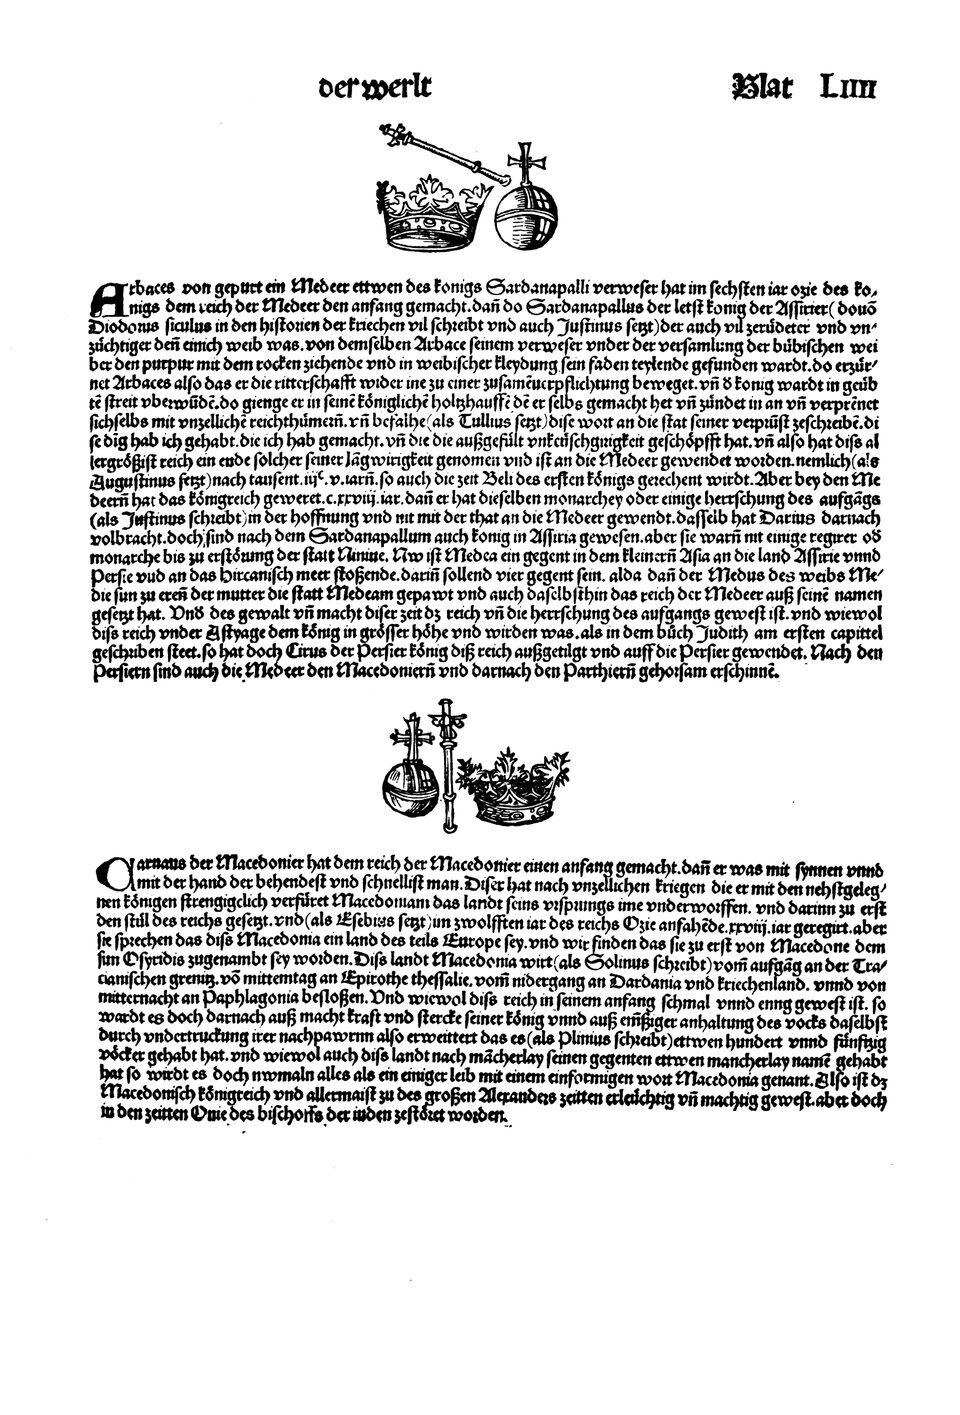 der werlt
Blat LIIII
Arbaces von gepurt ein Medeer ettwen des konigs Sardanapalli verweser hat im sechsten iar ozie des ko-
nigs dem reich der Medeer den anfang gemacht. dañ do Sardanapallus der letst konig der Assirier( douõ
Diodorus siculus in den historien der kriechen vil schreibt vnd auch Justinus setzt)der auch vil zerüdeter vnd vn-
züchtiger deñ einich weib was. von demselben Arbace seinem verweser vnder der versamlung der bübischen wei
ber den purpur mit dem rocken ziehende vnd in weibischer kleydung sein faden teylende gefunden wardt. do erzür-
net Arbaces also das er die ritterschafft wider ine zu einer zusamẽuerpflichtung beweget. vñ d̕ konig wardt in geüb
tẽ streit vberwũdẽ. do gienge er in seinẽ königlichẽ holtzhauffẽ dẽ er selbs gemacht het vñ zündet in an vñ verprẽnet
sichselbs mit vnzellichẽ reichthümerñ. vñ befalhe(als Tullius setzt)dise wort an die stat seiner verprüst zeschreibẽ. di
se dĩg hab ich gehabt. die ich hab gemacht. vñ die die außgefült vnkeüschgirigkeit geschöpfft hat. vñ also hat diss al
lergrößist reich ein ende solcher seiner lãgwirigkeit genomen vnd ist an die Medeer gewendet worden. nemlich(als
Augustinus setzt)nach tausent. iijᶜ. v. iarñ. so auch die zeit Beli des ersten königs gerechent wirdt. Aber bey den Me
deerñ hat das königreich geweret. c. xxviij. iar. dañ er hat dieselben monarchey oder einige herrschung des aufgãgs
(als Justinus schreibt)in der hoffnung vnd nit mit der that an die Medeer gewendt. dasselb hat Darius darnach
volbracht. doch sind nach dem Sardanapallum auch konig in Assiria gewesen. aber sie warñ nit einige regirer od̕
monarche bis zu erstörung der statt Niniue. Nw ist Medea ein gegent in dem kleinerñ Asia an die land Assirie vnnd
Persie vnd an das hircanisch meer stoßende. dariñ sollend vier gegent sein. alda dañ der Medus des weibs Me-
die sun zu ereñ der mutter die statt Medeam gepawt vnd auch daselbsthin das reich der Medeer auß seinẽ namen
gesetzt hat. Vnd̕ des gewalt vñ macht diser zeit dz reich vñ die herrschung des aufgangs gewest ist. vnd wiewol
diss reich vnder Astyage dem könig in grösser höhe vnd wirden was. als in dem büch Judith am ersten capittel
geschriben steet. so hat doch Cirus der Persier könig diß reich außgetilgt vnd auff die Persier gewendet. Nach den
Persiern sind auch die Medeer den Macedonierñ vnd darnach den Parthierñ gehorsam erschinnẽ.
Carnaus der Macedonier hat dem reich der Macedonier einen anfang gemacht. dañ er was mit synnen vnnd
mit der hand der behendest vnd schnellist man. Diser hat nach vnzellichen kriegen die er mit den nehstgeleg-
nen königen strengigclich verfüret Macedoniam das landt seins vrsprungs ime vnderworffen. vnd darinn zu erst
den stůl des reichs gesetzt. vnd(als Esebius setzt)im zwolfften iar des reichs Ozie anfahẽde. xxviij. iar geregirt. aber
sie sprechen das diss Macedonia ein land des teils Europe sey. vnd wir finden das sie zu erst von Macedone dem
sun Osyridis zugenambt sey worden. Diss landt Macedonia wirt(als Solinus schreibt)vom̃ aufgãg an der Tra-
cianischen grenitz. võ mittemtag an Epirothe thessalie. vom̃ nidergang an Dardania vnd kriechenland. vnnd von
mitternacht an Paphlagonia besloßen. Vnd wiewol diss reich in seinem anfang schmal vnnd enng gewest ist. so
wardt es doch darnach auß macht kraft vnd stercke seiner könig vnnd auß em̃ßiger anhaltung des vocks daselbst
durch vndertruckung irer nachpawrnn also erweittert das es(als Plinius schreibt)ettwen hundert vnnd fünftzig
völcker gehabt hat. vnd wiewol auch diss landt nach mãcherlay seinen gegenten ettwen mancherlay namẽ gehabt
hat so wirdt es doch nwmaln alles als ein einiger leib mit einem einformigen wort Macedonia genant. Also ist dz
Macedonisch königreich vnd allermaist zu des großen Alexanders zeitten erleüchtig vñ machtig gewest. aber doch
in den zeitten Onie des bischoffs der iuden zestöret worden.